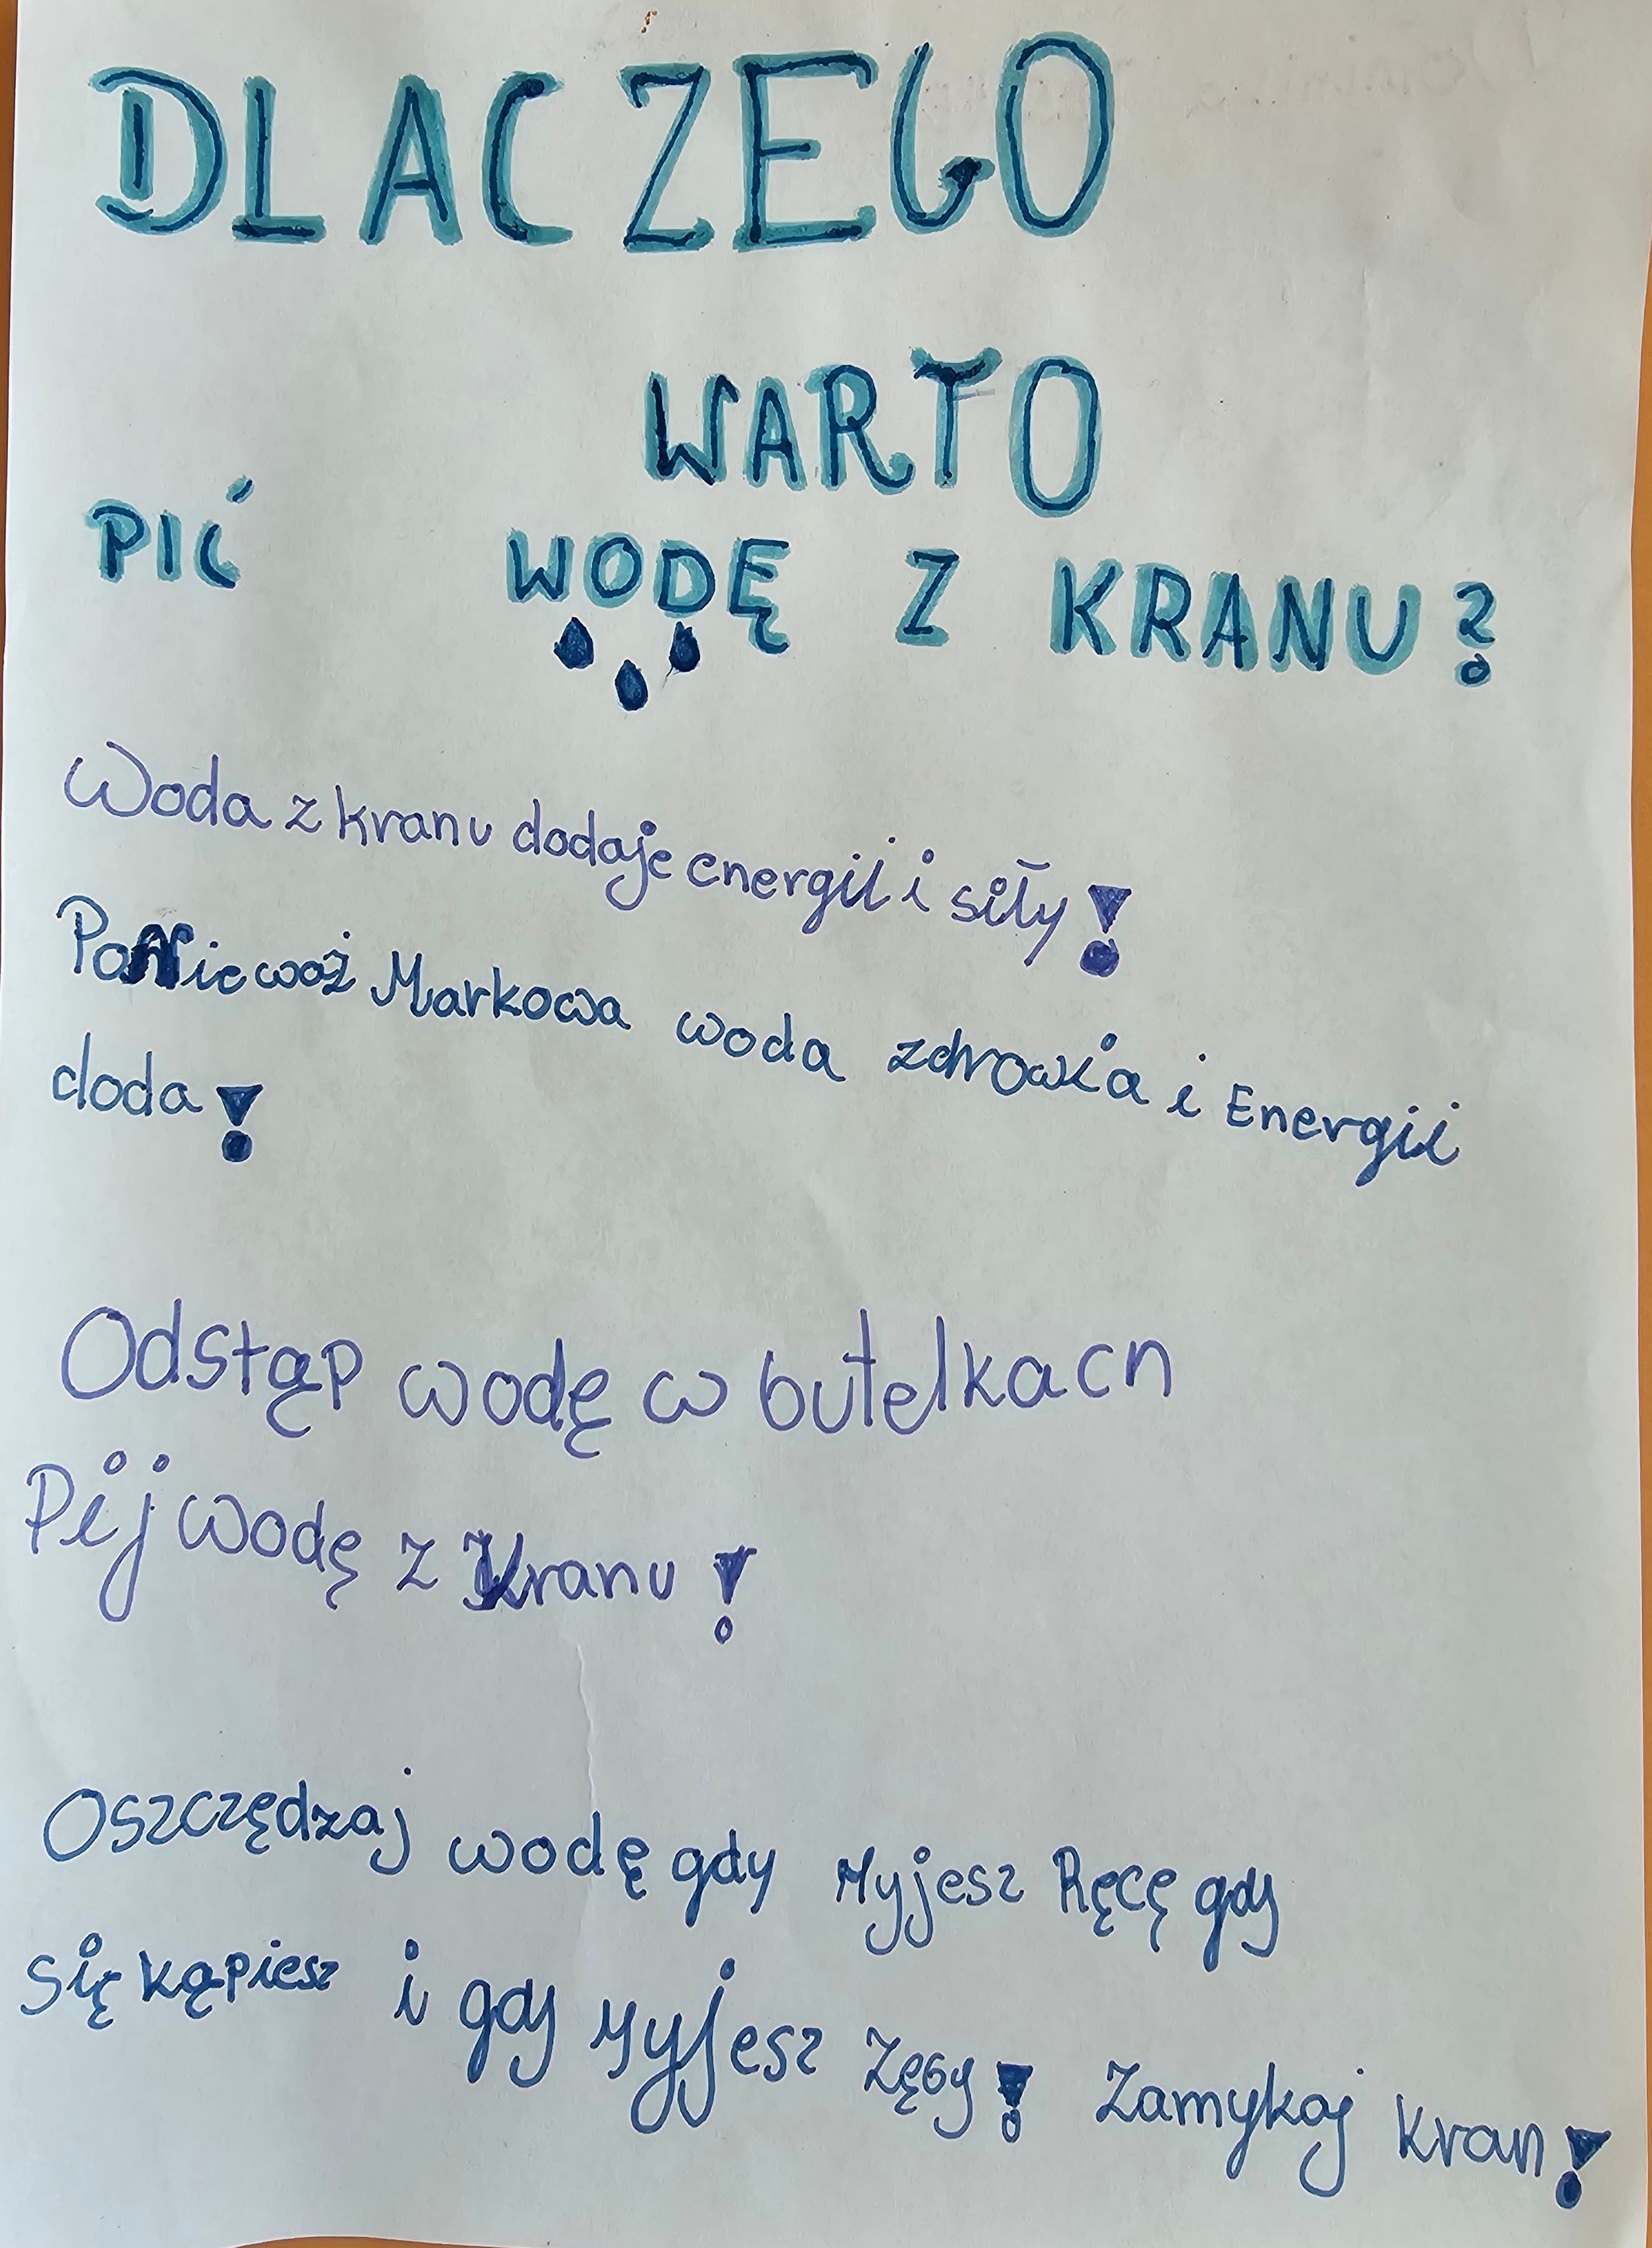 DLACZEGO
WARTO
PIĆ WODĘ Z KRANU?
Woda z kranu dodaje energii i siły!
Ponieważ Markowa woda zdrowia i Energii
doda!
Odstąp wodę w butelkach
Pij wodę z kranu!
Oszczędzaj wodę gdy Myjesz Ręcę gdy
się kąpiesz i gdy Myjesz Zęby! Zamykaj kran!